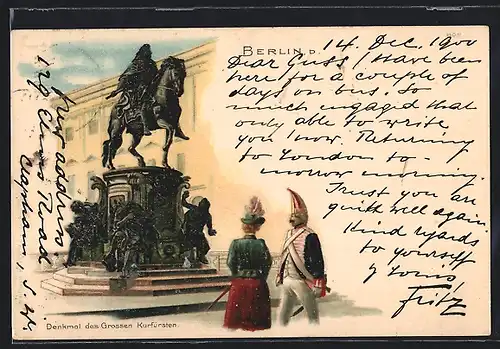 BERLIN, D. 14. Dec. 1900
Dear Guss, I have been
here for a couple of
days on bus. So
much engaged that
only able to write
you now. Returning
to London to-
morrow morning.
Trust you are
quite well again.
Kind regards
to yourself
Yours
Fritz
next address
129 Road
Clapham, S.W.
Denkmal des Grossen Kurfürsten.